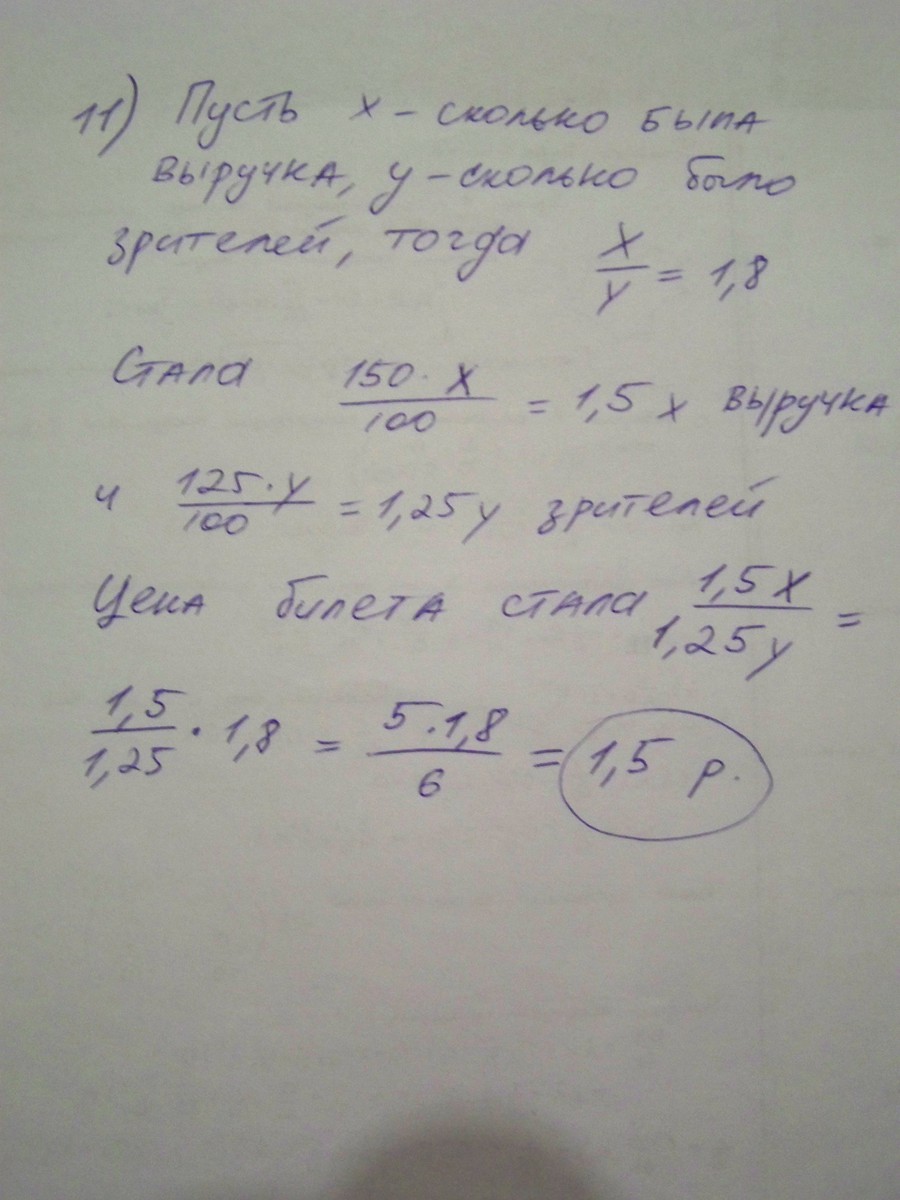 11) Пусть x – сколько была
выручка, y – сколько было
зрителей, тогда x/y = 1,8
Стала 150·x/100 = 1,5x выручка
и 125·y/100 = 1,25y зрителей
Цена билета стала 1,5x/1,25y =
1,5/1,25 · 1,8 = 5·1,8/6 = 1,5 р.